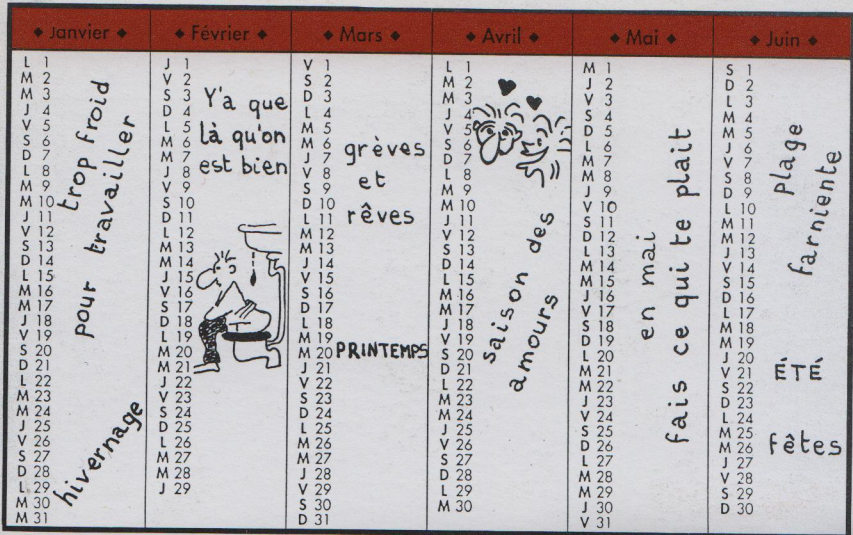 ♦ Janvier ♦
L 1
M 2
M 3
J 4
V 5
S 6
D 7
L 8
M 9
M 10
J 11
V 12
S 13
D 14
L 15
M 16
M 17
J 18
V 19
S 20
D 21
L 22
M 23
M 24
J 25
V 26
S 27
D 28
L 29
M 30
M 31
trop froid
pour travailler
hivernage
♦ Février ♦
J 1
V 2
S 3
D 4
L 5
M 6
M 7
J 8
V 9
S 10
D 11
L 12
M 13
M 14
J 15
V 16
S 17
D 18
L 19
M 20
M 21
J 22
V 23
S 24
D 25
L 26
M 27
M 28
J 29
Y'a que
là qu'on
est bien
♦ Mars ♦
V 1
S 2
D 3
L 4
M 5
M 6
J 7
V 8
S 9
D 10
L 11
M 12
M 13
J 14
V 15
S 16
D 17
L 18
M 19
M 20
J 21
V 22
S 23
D 24
L 25
M 26
M 27
J 28
V 29
S 30
D 31
grèves
et
rêves
PRINTEMPS
♦ Avril ♦
L 1
M 2
M 3
J 4
V 5
S 6
D 7
L 8
M 9
M 10
J 11
V 12
S 13
D 14
L 15
M 16
M 17
J 18
V 19
S 20
D 21
L 22
M 23
M 24
J 25
V 26
S 27
D 28
L 29
M 30
saison des
amours
♦ Mai ♦
M 1
J 2
V 3
S 4
D 5
L 6
M 7
M 8
J 9
V 10
S 11
D 12
L 13
M 14
M 15
J 16
V 17
S 18
D 19
L 20
M 21
M 22
J 23
V 24
S 25
D 26
L 27
M 28
M 29
J 30
V 31
en mai
fais ce qui te plait
♦ Juin ♦
S 1
D 2
L 3
M 4
M 5
J 6
V 7
S 8
D 9
L 10
M 11
M 12
J 13
V 14
S 15
D 16
L 17
M 18
M 19
J 20
V 21
S 22
D 23
L 24
M 25
M 26
J 27
V 28
S 29
D 30
plage
farniente
ÉTÉ
fêtes